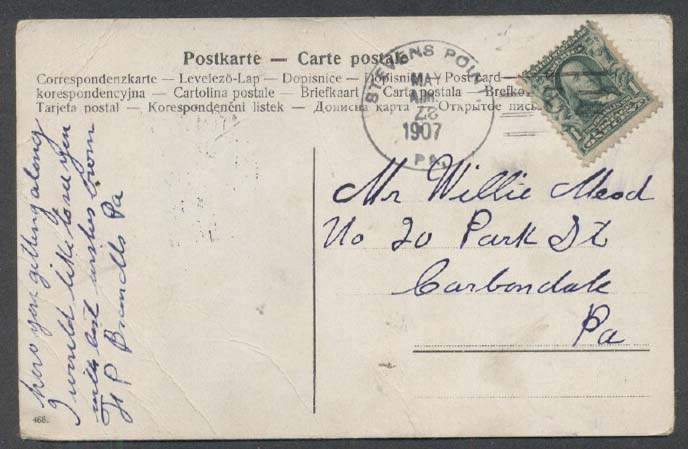 Postkarte — Carte postale
Correspondenzkarte — Levelező-Lap — Dopisnice — Dopisnica — Postcard —
korespondencyjna — Cartolina postale — Briefkaart — Carta postala — Brefko
Tarjeta postal — Korespondenční lístek — Дописна карта — Открытое письмо
STEVENS POINT
MAY
AM
23
1907
PA.
Mr Willie Mead
No 20 Park St
Carbondale
Pa
how you getting along
I would like to see you
with best wishes from
H P Pa
468.